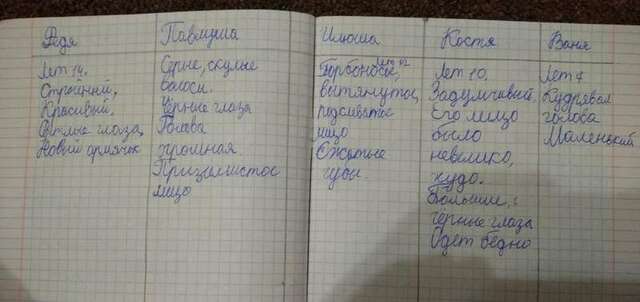 Федя
Лет 14.
Стройный,
Красивый,
Светлые глаза,
Новый армячок
Павлуша
Серые, скулые
волосы.
Чёрные глаза
Голова
громная.
Приземистое
лицо
Илюша
Лет 12
Горбоносое,
вытянутое,
подслеватое
лицо
Сжатые
губы.
Костя
Лет 10.
Задумчивый
его лицо
было
невелико,
худо.
Большие,
чёрные глаза
Одет бедно
Ваня
Лет 7
Кудрявая
голова
Маленький